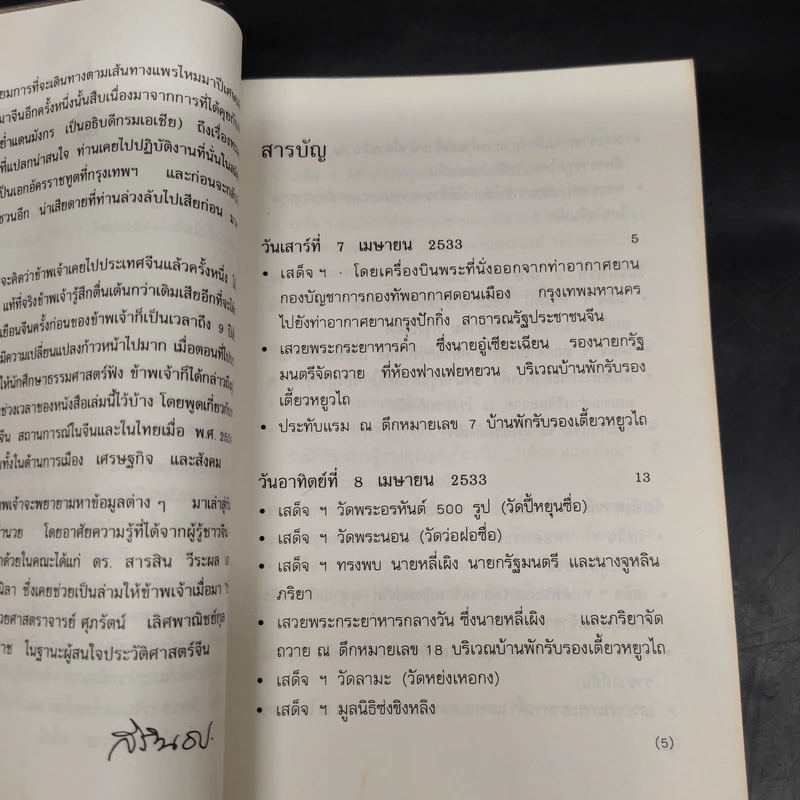 ยมการที่จะเดินทางตามเส้นทางแพรไหมมาปีเศษ
มาจีนอีกครั้งหนึ่งนั้นสืบเนื่องมาจากการที่ได้คุยกับ
ย่ำแดนมังกร เป็นอธิบดีกรมเอเชีย) ถึงเรื่อง
ที่แปลกน่าสนใจ ท่านเคยไปปฏิบัติงานที่นั่นใน
เป็นเอกอัครราชทูตที่กรุงเทพฯ และก่อนจะ
ชวนอีก น่าเสียดายที่ท่านล่วงลับไปเสียก่อน
จะคิดว่าข้าพเจ้าเคยไปประเทศจีนแล้วครั้งหนึ่ง
แท้ที่จริงข้าพเจ้ารู้สึกตื่นเต้นกว่าเดิมเสียอีกที่จะ
เยือนจีนครั้งก่อนของข้าพเจ้าก็เป็นเวลาถึง 9 ปี
มีความเปลี่ยนแปลงก้าวหน้าไปมาก เมื่อตอนที่ไป
ให้นักศึกษาธรรมศาสตร์ฟัง ข้าพเจ้าก็ได้กล่าวถึง
ช่วงเวลาของหนังสือเล่มนี้ไว้บ้าง โดยพูดเกี่ยวกับ
จีน สถานการณ์ในจีนและในไทยเมื่อ พ.ศ. 25
ทั้งในด้านการเมือง เศรษฐกิจ และสังคม
พเจ้าจะพยายามหาข้อมูลต่าง ๆ มาเล่าสู่
อำนวย โดยอาศัยความรู้ที่ได้จากผู้รู้ชาวจีน
าด้วยในคณะได้แก่ ดร. สารสิน วีระผล
นิลา ซึ่งเคยช่วยเป็นล่ามให้ข้าพเจ้าเมื่อมา
วยศาสตราจารย์ ศุภรัตน์ เลิศพาณิชย์กุล
ราช ในฐานะผู้สนใจประวัติศาสตร์จีน
สิรินธร
สารบัญ
วันเสาร์ที่ 7 เมษายน 2533 5
• เสด็จ ฯ · โดยเครื่องบินพระที่นั่งออกจากท่าอากาศยาน
กองบัญชาการกองทัพอากาศดอนเมือง กรุงเทพมหานคร
ไปยังท่าอากาศยานกรุงปักกิ่ง สาธารณรัฐประชาชนจีน
• เสวยพระกระยาหารค่ำ ซึ่งนายอู่เซียะเฉียน รองนายกรัฐ
มนตรีจัดถวาย ที่ห้องฟางเฟยหยวน บริเวณบ้านพักรับรอง
เตี้ยวหยูวไถ
• ประทับแรม ณ ตึกหมายเลข 7 บ้านพักรับรองเตี้ยวหยูวไถ
วันอาทิตย์ที่ 8 เมษายน 2533 13
• เสด็จ ฯ วัดพระอรหันต์ 500 รูป (วัดปี้หยุนซื่อ)
• เสด็จ ฯ วัดพระนอน (วัดว่อฝอซื่อ)
• เสด็จ ฯ ทรงพบ นายหลี่เผิง นายกรัฐมนตรี และนางจูหลิน
ภริยา
• เสวยพระกระยาหารกลางวัน ซึ่งนายหลี่เผิง และภริยาจัด
ถวาย ณ ตึกหมายเลข 18 บริเวณบ้านพักรับรองเตี้ยวหยูวไถ
• เสด็จ ฯ วัดลามะ (วัดหย่งเหอกง)
• เสด็จ ฯ มูลนิธิซ่งชิงหลิง
(5)